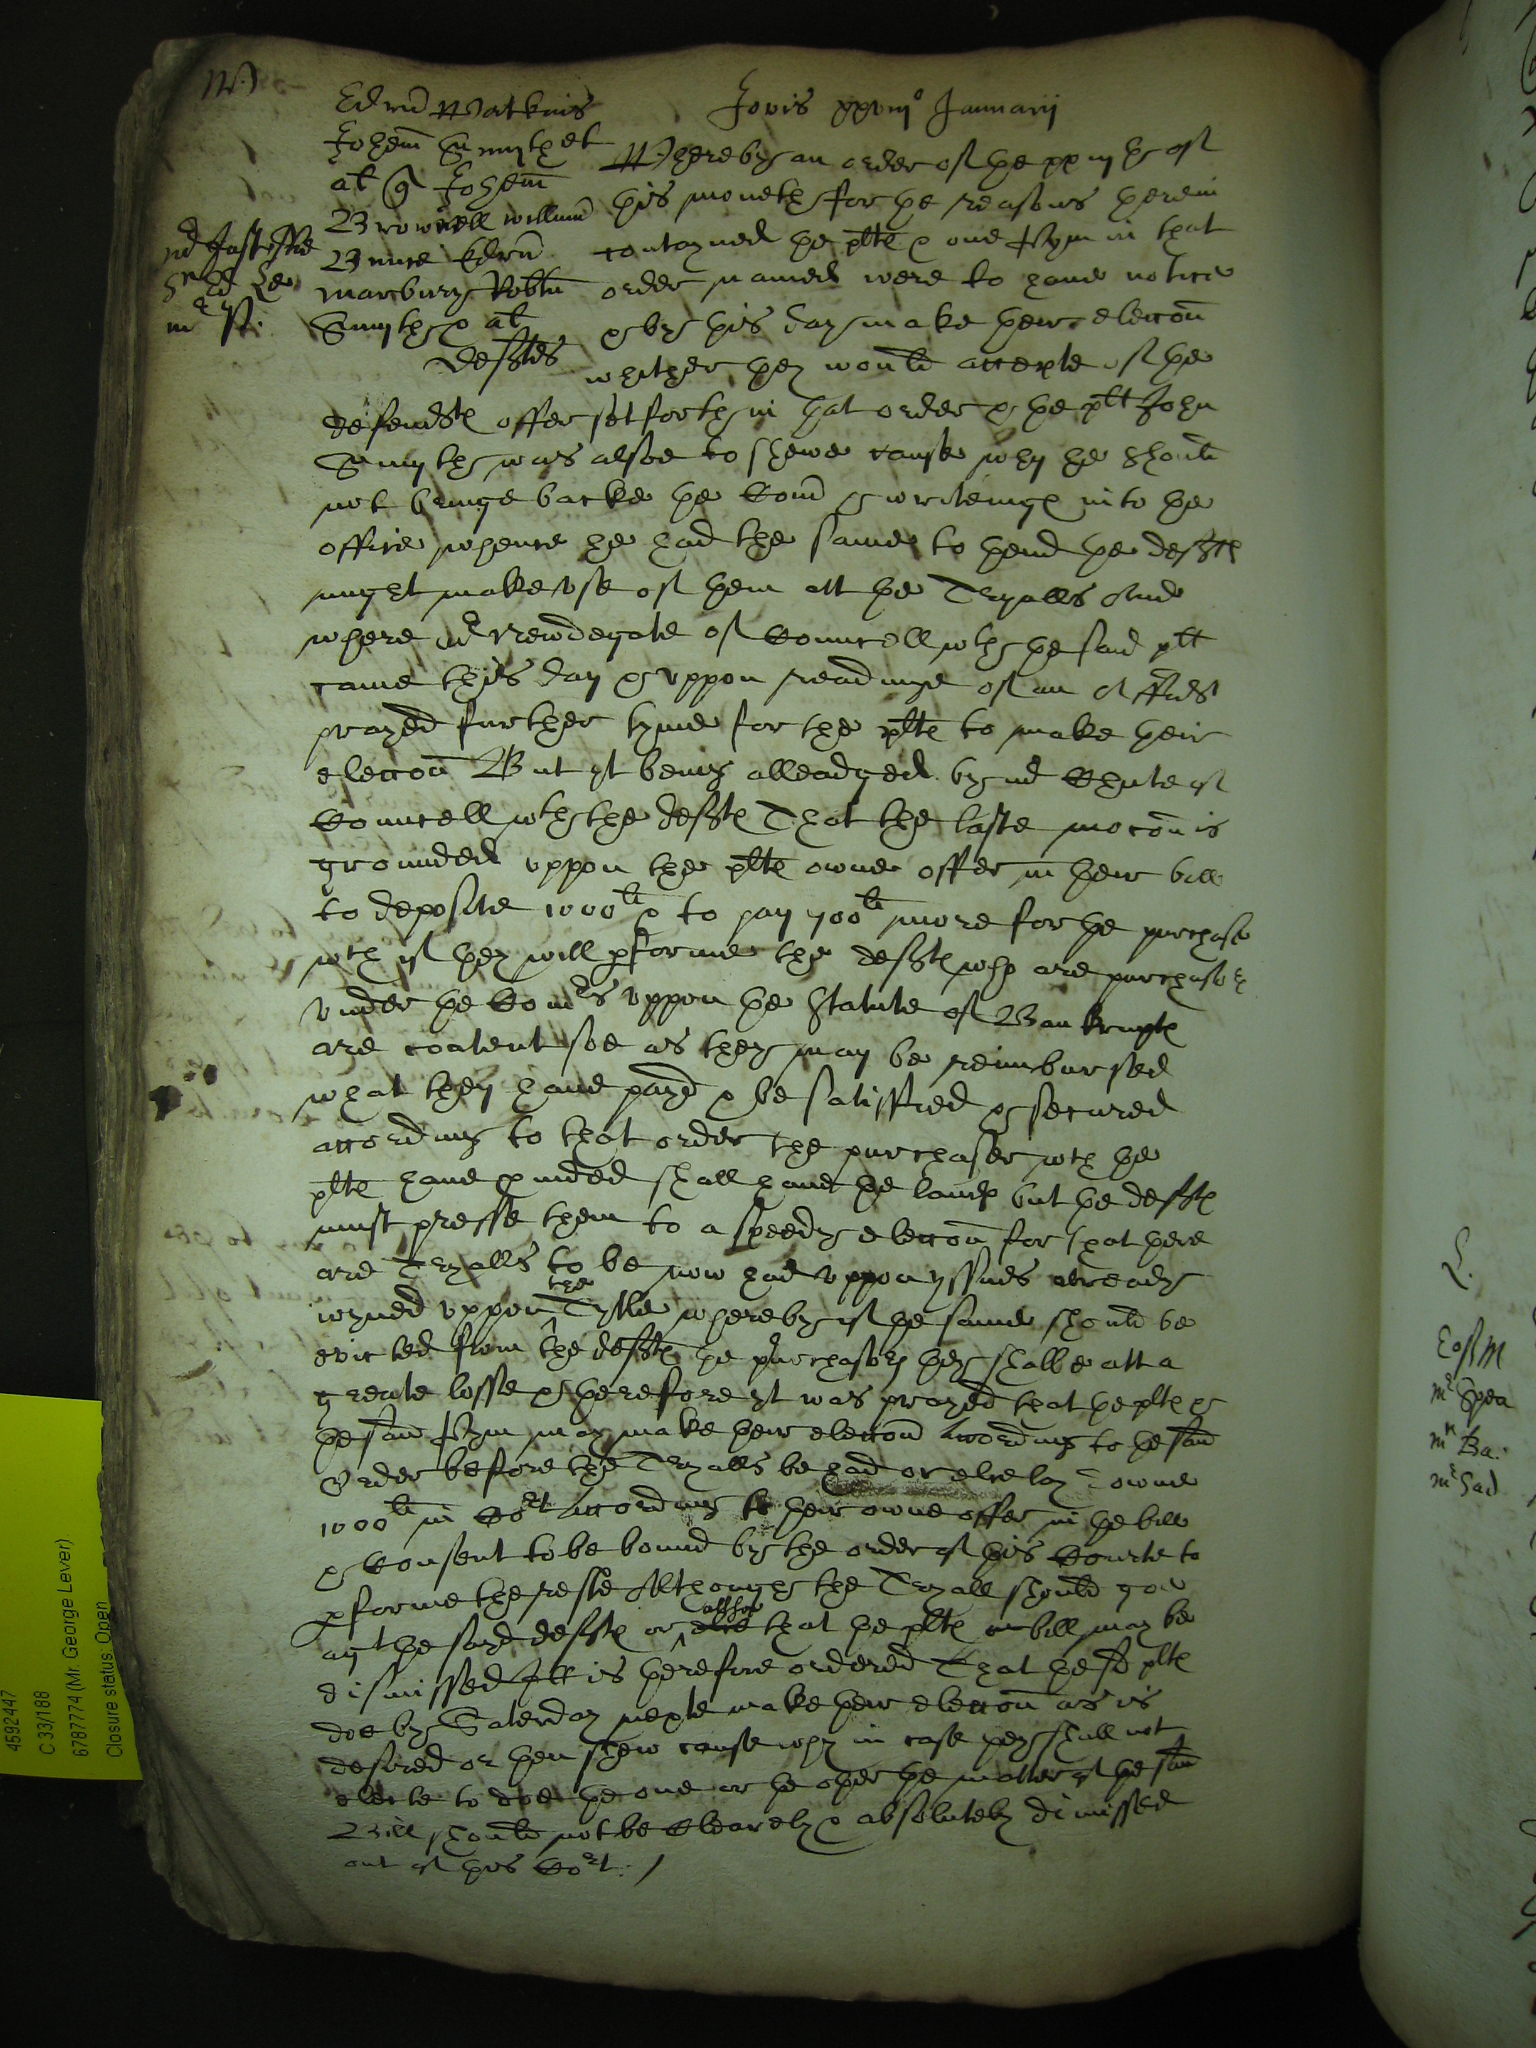 W)
Jovis xxviijº Januarij
Edrũ Watkins
Johem̃ Smyth et
al q̃ Johem̃
Brownell willm̃
Bruce Edrũ
Marbury Robtũ
Smythe & al
defts
Whereby an order of the xxiijth of
this moneth for the reasons therein
contayned the plts & one Pym in that
order named were to have notice
& by this day make their eleccõn
whither they would accepte of the
defendts offer sett forth in that order & the plt John
Smyth was alsoe to shewe cause why he should
not bringe backe the Com̃ & writeings into the
office whence he had the same to thend the defts
might make use of them att the Tryalls And
where Mr Newdegate of Councell wth the said plt
came this day & uppon readinge of an Affidt
prayed further tyme for the plts to make their
eleccõn But yt being alleadged by Mr Chute of
Councell wth the defts That the laste mocõn is
grounded uppon the plts owne offer in their bill
to deposite 1000li & to pay 700li more for the purchase
wch if they will pforme the defts who are purchasors
under the Comrs uppon the Statute of Bankrupts
are content soe as they may be reimbursed
what they have payd & be satisffied & secured
according to that order the purchaser wch the
plts have & inded shall have the lands but the defts
must presse them to a speedy eleccõn for that there
are Tryalls to be now had uppon yssues already
ioyned uppon the Tytle whereby if the same should be
evicted from the defts the purchasors they shalbe att a
greate losse & therefore yt was prayed that the plts &
the said Pym may make their eleccõn According to the said
Order before the Tryalls be had or else lay downe
1000li in Cort According to their owne offer in the bill
& Consent to be bound by the order of this Courte to
pforme the reste Althoughe the Tryall should goe
agt the sayd defts or that the plts bill may be
dismissed Itt is therefore ordered That the sd plts
doe by Saterday nexte make their eleccõn as is
desired or then shew cause why in case they shall not
electe to doe the one or the other the matter of the said
Bill should not be Clearely & absolutely dimissed
out of this Cort /
L.
Mr Spea
Mr Ba:
Mr Sad
4592447
C 33/188
6787774 (Mr. George Lever)
Closure status: Open